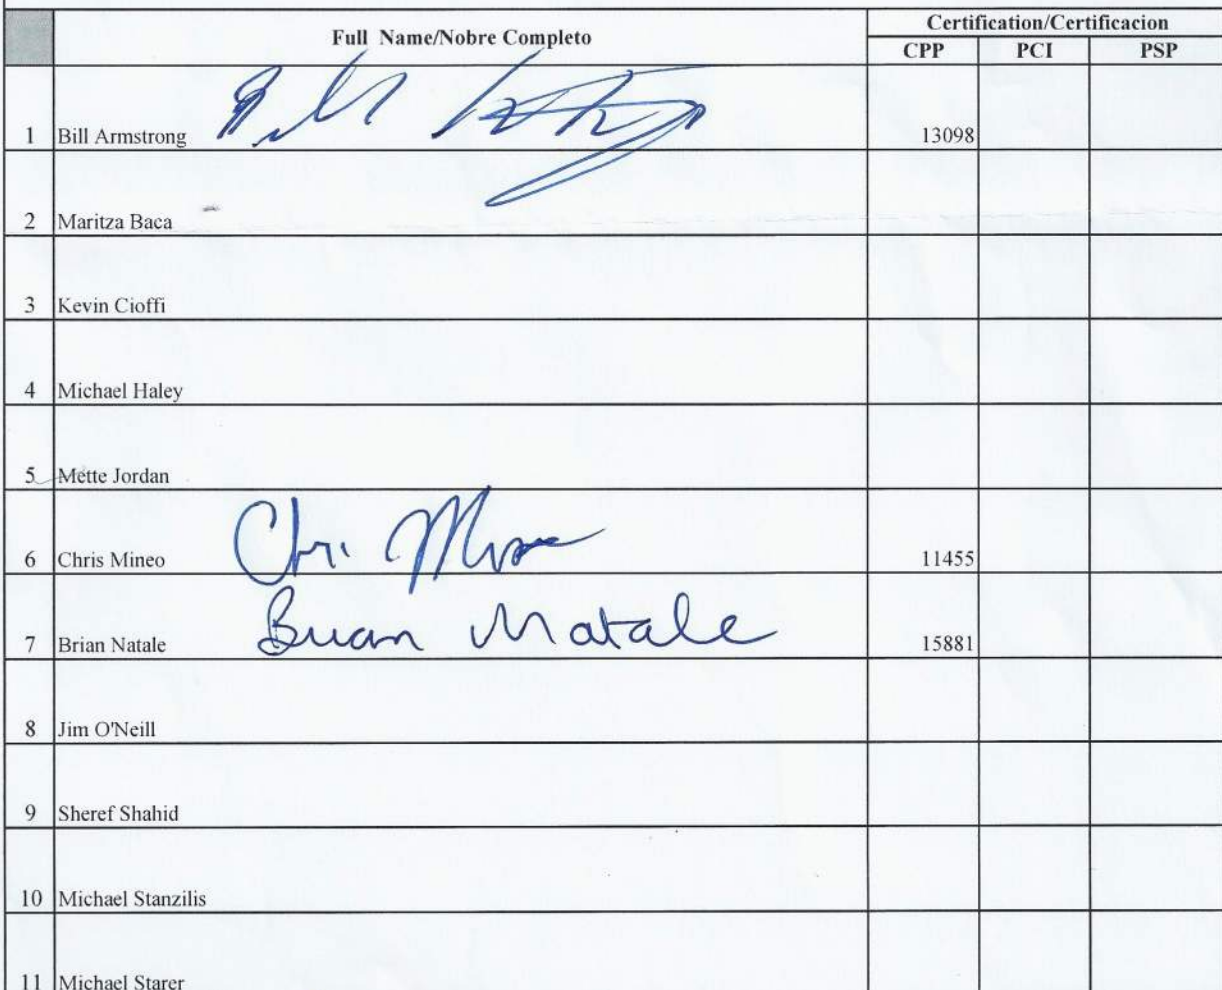 Full Name/Nobre Completo
Certification/Certificacion
CPP PCI PSP
1 Bill Armstrong 13098
2 Maritza Baca
3 Kevin Cioffi
4 Michael Haley
5 Mette Jordan
Chris Mineo
6 Chris Mineo 11455
Brian Natale
7 Brian Natale 15881
8 Jim O'Neill
9 Sheref Shahid
10 Michael Stanzilis
11 Michael Starer